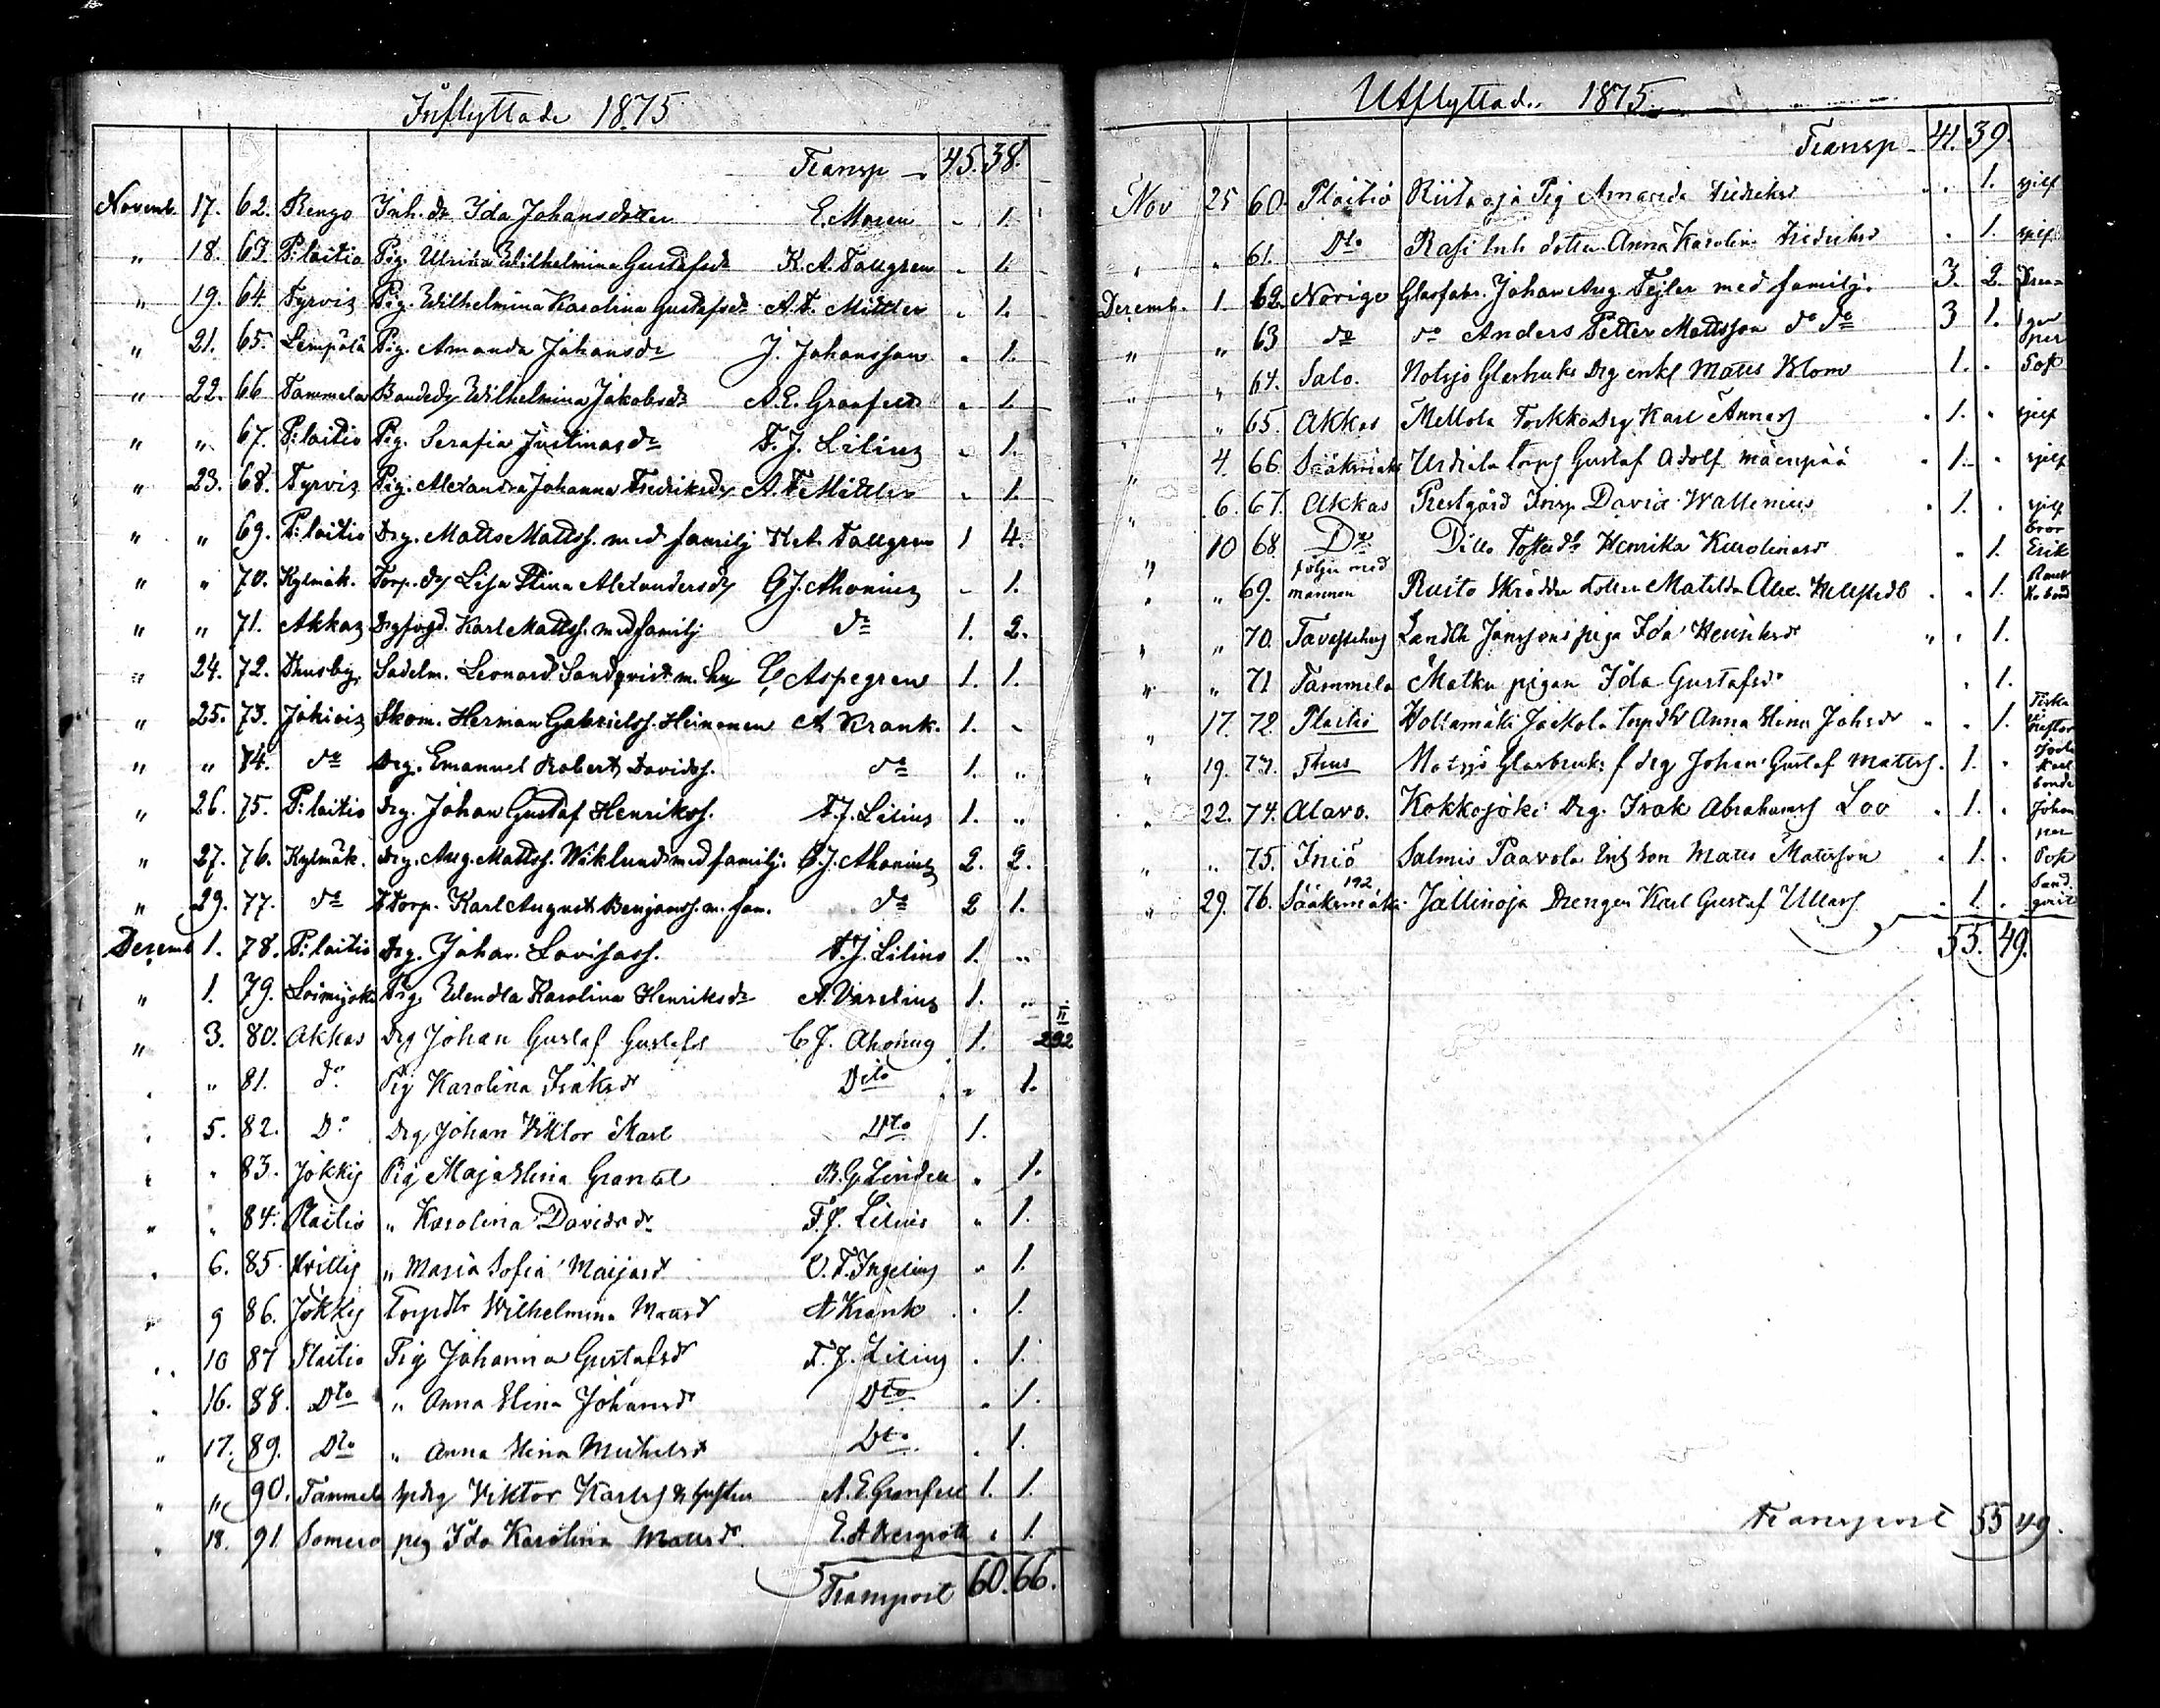 Inflyttade 1875
Transp 45. 38.
Novemb. 17. 62. Rengo Inh. dr Ida Johansdotter E. Moren " 1.
" 18. 63. P:laitio Pig. Ulrika Wilhelmina Gustafsdr K. A. Tallgren " 1.
" 19. 64. Tyrvis Pig. Wilhelmina Karolina Gustafsdr A. F. Mittler " 1.
" 21. 65. Lempälä Pig. Amanda Johansdr J. Johansson " 1.
" 22. 66. Tammela Bondedr Wilhelmina Jakobsdr A. E. Granfelt " 1.
" " 67. P:laitio Pig. Serafia Justinasdr F. J. Lilius " 1.
" 23. 68. Tyrvis Pig. Alexandra Johanna Fredriksdr A. F. Mittler " 1.
" " 69. P:laitio Drg. Matts Mattss. med familj K. A. Tallgren 1 4.
" " 70. Kylmäk. Torp. dr Lisa Stina Alexandersdr C. J. Ahonius " 1.
" " 71. Akkas Drg Karl Mattss. med familj do 1. 2.
" 24. 72. Sadelm. Leonard Sandqvist m. hu Aspegren 1. 1.
" 25. 73. Jokiois Skom. Herman Gabrielss. Heinonen A Krank. 1. "
" " 74. do Drg. Emanuel Robert Davidss. do 1. "
" 26. 75. P:laitio Drg. Johan Gustaf Henrikss. F. J. Lilius 1. "
" 27. 76. Kylmäk. Drg. Aug. Mattss. Wiklund med familj. C. J. Ahonius 2. 2.
" 29. 77. do Torp. Karl August Benjamss. m. fam. do 2 1.
Decemb 1. 78. P:laitio Drg. Johan Lovisass. F. J. Lilius 1. "
" 1. 79. Loimijoki Pig. Wendla Karolina Henriksdr A. Varelius 1. "
" 3. 80. Akkas Drg Johan Gustaf Gustafss C. J. Ahonius 1. 292
" " 81. do Pig Karolina Isaksdr Dito " 1.
" 5. 82. Do Drg Johan Viktor Karl Dto 1.
" " 83. Jokkis Pig Maja Stina B. G. Linden " 1.
" " 84. Plaitio " Karolina Davidsdr F. J. Lilius " 1.
" 6. 85. " Maria Sofia Maijasdr O. F. Ingelius " 1.
" 9 86. Jokkis Torpdtr Wilhelmina Mattsdr A Krank " 1.
" 10 87 Plaitio Pig Johanna Gustafsdr F. J. Lilius " 1.
" 16. 88. Dto " Anna Stina Johansdr Dto " 1.
" 17. 89. Dto " Anna Stina Michelsdr Dto " 1.
" " 90. Tammela Viktor Karlss & hustru A. E. Granfelt 1. 1.
" 18. 91. Somero pig Ida Karolina Mattsdr " 1.
Transport 60. 66.
Utflyttad.. 1875
Transp 41. 39.
Nov 25 60. Plaitio Riitaoja Pig Amanda Fredriksd " 1. sjelf
" " 61. Dto Rasi Inh dotter Anna Karolin Fredriksd " 1. sjelf
Decemb. 1. 62. Norige Glasfabr. Johan Aug Tejler med familj. 3. 2.
" " 63 do do Anders Petter Mattsson do do 3 1.
" " 64. Salo. Notsjö Glasbruks Drg enkl Matts Blom 1. "
" " 65. Akkas Mellola Torkko Drg Karl Annass 1. " sjelf
" 4. 66 Sääksmäki Urdiala Gustaf Adolf Mäenpää 1. " sjelf
" 6. 67. Akkas Prestgård Insp David Wallenius 1. " sjelf
" 10 68 Do Ditto Henrika Karolinasdr " 1. bror Erik
" " 69. följer med mannen Ruito Skräddar dotter Matilda Alex. " 1.
" " 70. Tavastehus Landth Janssons piga Ida Henriksdr " 1.
" " 71 Tammela Matku pigan Ida Gustafsdr " 1.
" 17. 72. Plaitio Jaskola Torpdtr Anna Stina Johsdr " 1.
" 19. 73. Notsjö Glasbruks f drg Johan Gustaf Mattss. 1. "
" 22. 74. Alavo. Kokkojoki Drg. Isak Abrahamss Loo 1. "
" " 75. Iniö Salmis Paavola Inh Son Matts Matsson 1. "
" 29. 76. Sääksmäki 192 Jällinoja Drengen Karl Gustaf Ullass 1. "
55. 49.
Transport 55 49.